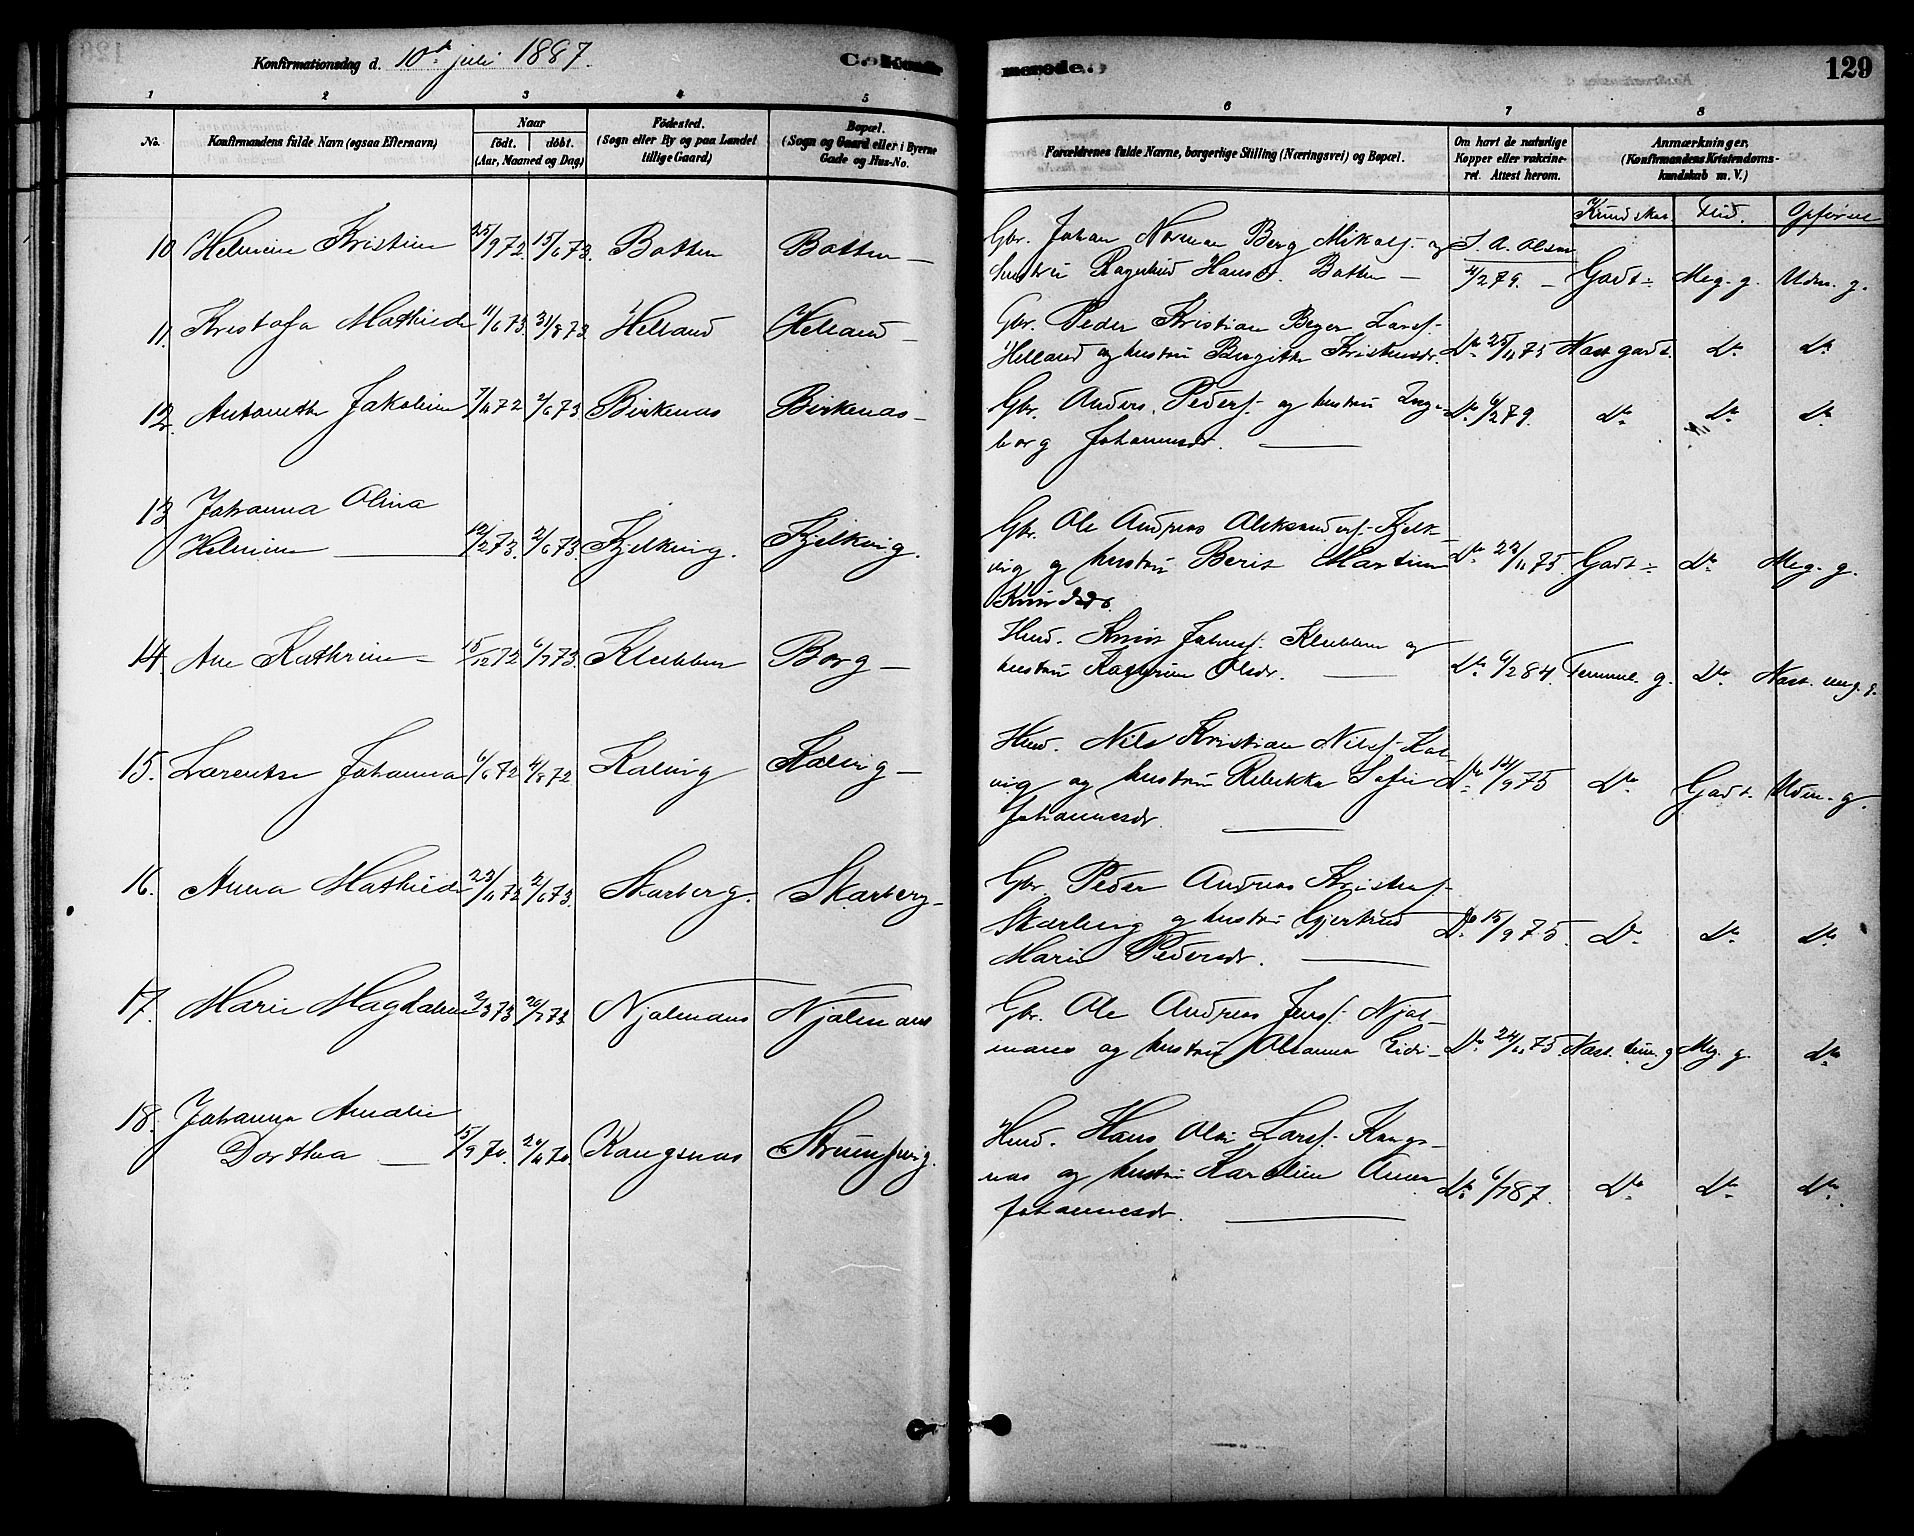 Konfirmationsdag d. 10de juli 1887.
Confirmerede.
129
1 2 3 4 5 6 7 8
No.
Konfirmandens fulde Navn (ogsaa Efternavn)
Naar
født. døbt.
(Aar, Maaned og Dag)
Fødested.
(Sogn eller By og paa Landet
tillige Gaard)
Bopæl.
(Sogn og Gaard eller i Byerne
Gade og Hus-No.
Forældrenes fulde Navne, borgerlige Stilling (Næringsvei) og Bopæl.
Om havt de naturlige
Kopper eller vakcine-
ret. Attest herom.
Anmærkninger.
(Konfirmandens Kristendoms-
kundskab m. V.)
Kundskab Flid. Opførsel
10 Helmine Kristine 25/9 72 15/6 73. Botten Botten —
Gbr. Johan Norman Berg Mikals. og S. A. Olsen
hustru Ragnhild Hansd. Botten — 4/2 79. — Godt Meg. g. Udm. g.
11. Kristofa Mathilde 11/6 73. 31/8 73. Helland Helland —
Gbr. Peder Kristian Beyer Lars.
Helland og hustru Birgitte Kristensdr. Do 25/11 75 Næst godt. Do Do
12. Antonette Jakobine 7/11 72 2/6 73 Birkenæs Birkenæs —
Gbr. Anders Peders. og hustru Inge- Do 6/2 79. Do Do Do
borg Johannesdr. —
13 Johanna Olina
Helmine — 12/2 73. 2/6 73. Kjelkvig. Kjelkvig.
Gbr. Ole Andreas Aleksanders. Kjelk-
vig og hustru Berit Martine Do 23/11 75. Godt Do Meg. g.
Knudsdr.
14. Ane Kathrine — 15/12 72 6/7 73. Klubben Borg —
Husd. Knut Johns. Klubben og
hustru Kathrine Olsdr. — Do 6/2 84. Temmel. g. Do Næst. meg. g.
15. Larentse Johanna 6/6 72 4/8 72 Kalvig Kalvig —
Husd. Nils Kristian Nils. Kal-
vig og hustru Rebekka Sofie Do 14/9 75 Do Godt. Udm. g.
Johannesdr. —
16. Anna Mathilde 23/11 72 2/6 73. Skarberg. Skarberg —
Gbr. Peder Andreas Kristens.
Skarberg og hustru Gjertrud Do 15/9 75. Do Do Do
Marie Pedersdr. —
17. Marie Magdalene 2/3 73 20/7 73 Njalmaas Njalmaas
Gbr. Ole Andreas Jens. Njal-
maas og hustru Do 24/11 75 Næst. tem. g Meg. g. Do
18. Johanna Amalie
Dorthea — 15/9 70. 20/11 70. Kongsnæs Strumpvig.
Husd. Hans Olai Lars. Kongs-
næs og hustru Karoline Anna Do 6/7 87. Do Do Do
Johannesdr. —